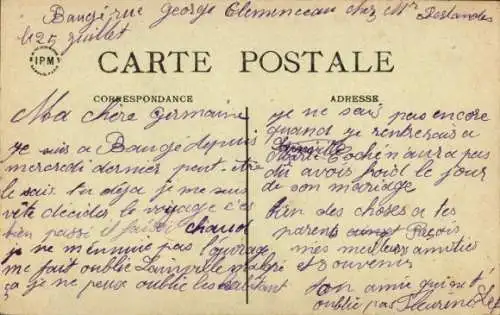 Baugé rue George Clemenceau chez Mr
le 25 juillet
IPM
CARTE POSTALE
CORRESPONDANCE
ADRESSE
Ma chère Germaine
je suis a Baugé depuis
mercredi dernier peut-être
le sais tu déja je me suis
vite décider le voyage c'es
bien passé il fait chaud
je ne m'ennuie pas l'ouvrage
me fait oublié malgré
ça je ne peux oublié les
je ne sais pas encore
quand je rentrerais a
Marie n'aura pas
du avois froid le jour
de son mariage
bien des choses a tes
parents Reçois
mes meilleurs amitiés
et souvenirs
ton amie qui ne t
oublie pas